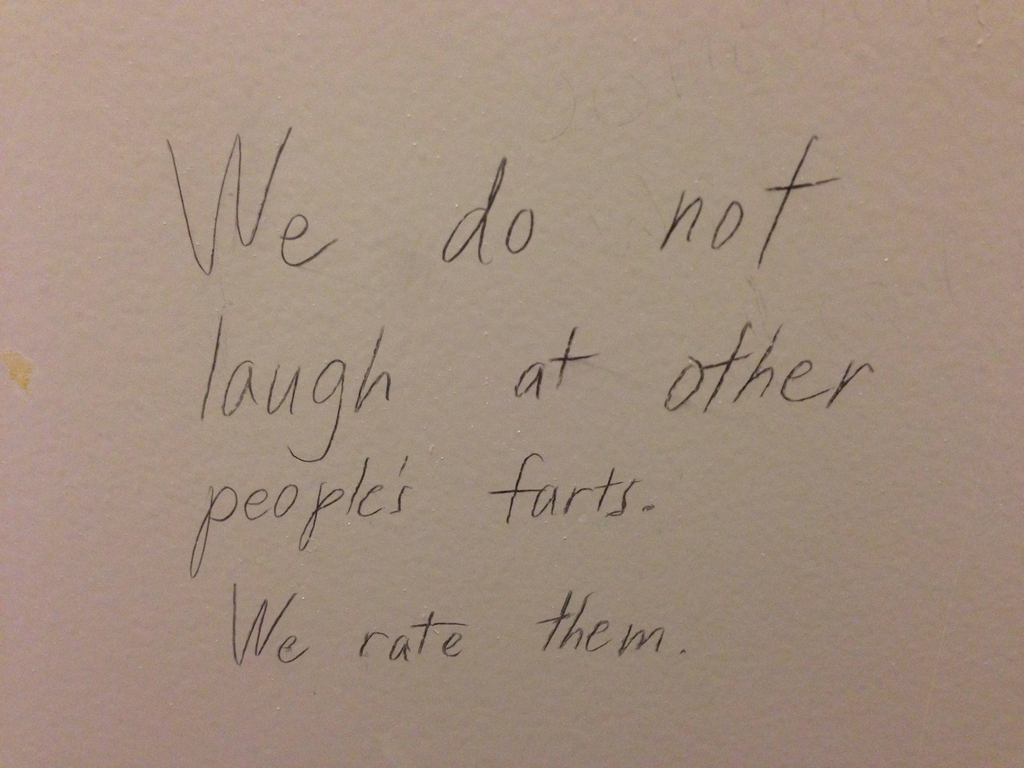 We do not
laugh at other
people's farts.
We rate them.